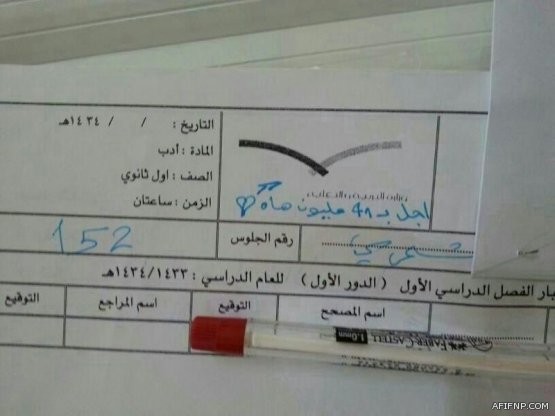 التاريخ : / / ١٤٣٤هـ
المادة : أدب
الصف : اول ثانوي
الزمن : ساعتان
وزارة التربية والتعليم
اجل بـ ٤٨ مليون هاه
رقم الجلوس
152
شمري
بار الفصل الدراسي الأول ( الدور الأول ) للعام الدراسي : ١٤٣٤/١٤٣٣هـ
اسم المصحح
التوقيع
اسم المراجع
التوقيع
1.0mm FABER-CASTELL
AFIFNP.COM